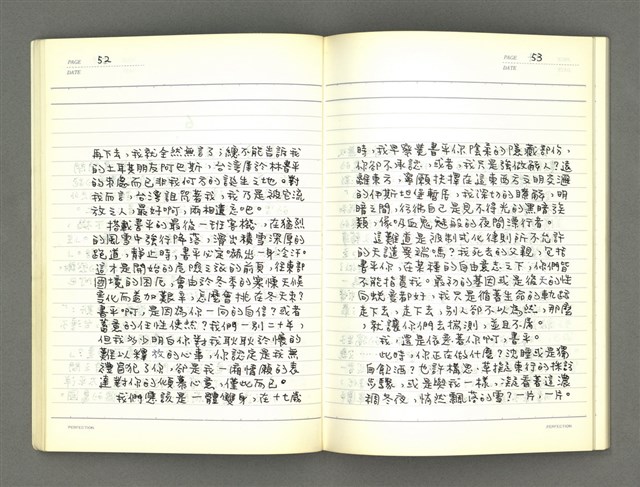 PAGE 52
DATE
再下去,我就全然無言了;總不能告訴我
的土耳其朋友阿巴斯,台灣屬於林書平
的來處而已非我何方的誕生之地。對
我而言,台灣詛咒著我,我乃是被它流
放之人,最好啊,兩相遺忘吧。
搭載書平的最後一班客機,在猛烈
的風雪中強行降落,滑出積雪深厚的
跑道,靜止時,書平必定滲出一身冷汗。
這才是開始的危險之旅的前頁,往東部
國境的困厄,會由於冬季的寒慄天候
變化而益加艱辛,怎麼會挑在冬天來?
書平啊,是因為你一向的自信?或者
蓄意的任性使然?我們一別二十年,
但我多少明白你對我耿耿於懷的
難以釋放的心事,你認定是我無
禮冒犯了你,卻是我一廂情願的表
達對你的傾慕心意,僅此而已。
我們應該是一體雙身,在十七歲
PERFECTION
PAGE 53
DATE
時,我早察覺書平你陰柔的隱藏部份,
你卻不承認,或者,我只是強做解人?遠
離東方,寧願抉擇在這東西方文明交邇
的伊斯坦堡暫居,我深切的瞭解,明
暗之間,彷彿自己是見不得光的黑暗孩
類,像吸血鬼魅般的夜間潛行者。
這難道是被制式化律則所不允許
的天譴異端嗎?我死去的父親,包括
書平你,在某種的自由意志之下,你們皆
不能指責我。最初的基因或是後天的性
向岐異都好,我只是循著生命的軌跡
走下去,走下去,別人卻不以為然,那麼
,就讓你們去揣測,並且不屑。
我,還是傾慕著你啊,書平。
此時,你正在做什麼?沈睡或是獨
自飲酒?也許構思、草擬東行的採訪
步驟,或是與我一樣,凝看著這濃
稠冬夜,悄然飄落的雪?一片,一片。
PERFECTION